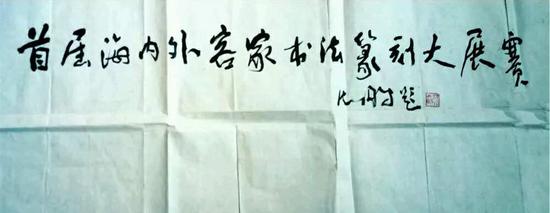 首届海内外客家书法篆刻大展赛
沈鹏题